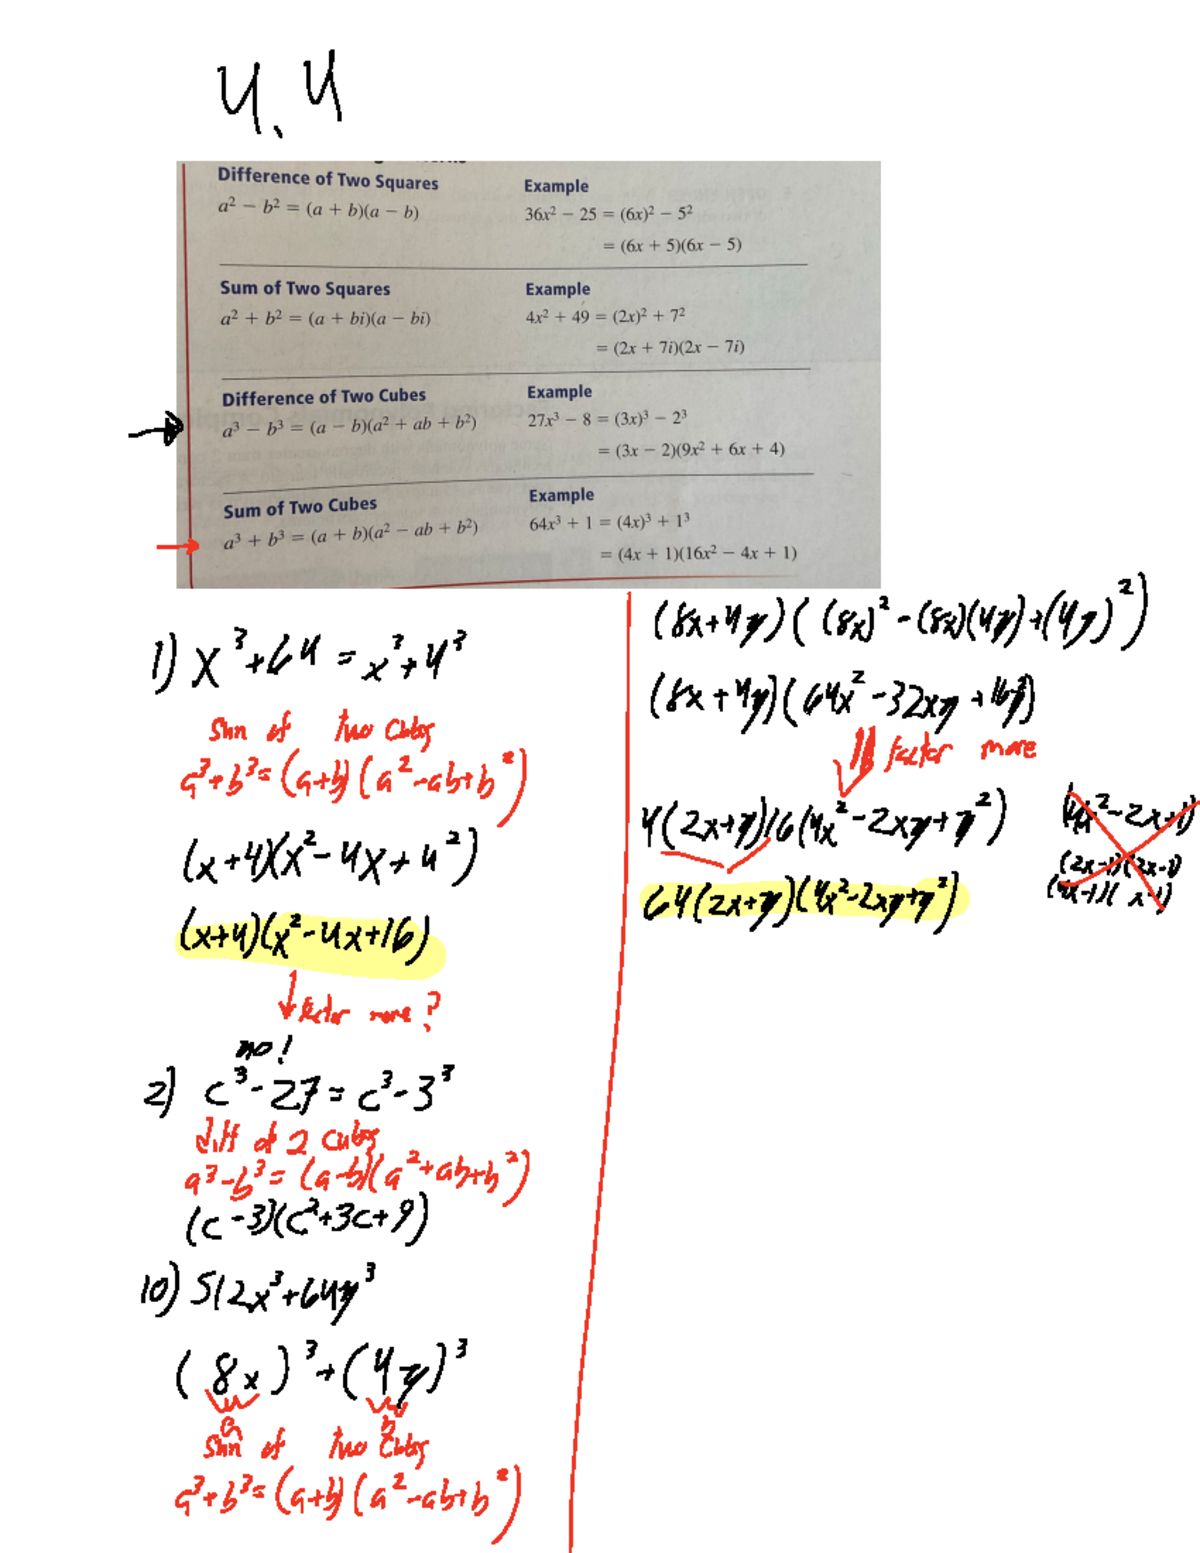 4.4
Difference of Two Squares
Example
a² − b² = (a + b)(a − b)
36x² − 25 = (6x)² − 5²
= (6x + 5)(6x − 5)
Sum of Two Squares
Example
a² + b² = (a + bi)(a − bi)
4x² + 49 = (2x)² + 7²
= (2x + 7i)(2x − 7i)
Difference of Two Cubes
Example
a³ − b³ = (a − b)(a² + ab + b²)
27x³ − 8 = (3x)³ − 2³
= (3x − 2)(9x² + 6x + 4)
Sum of Two Cubes
Example
a³ + b³ = (a + b)(a² − ab + b²)
64x³ + 1 = (4x)³ + 1³
= (4x + 1)(16x² − 4x + 1)
1) x³+64 = x³+4³
Sum of two Cubes
a³+b³=(a+b)(a²-ab+b²)
(x+4)(x²-4x+4²)
(x+4)(x²-4x+16)
factor more?
no!
2) c³-27=c³-3³
diff of 2 cubes
a³-b³=(a-b)(a²+ab+b²)
(c-3)(c²+3c+9)
10) 512x³+64y³
(8x)³+(4y)³
a b
Sum of two Cubes
a³+b³=(a+b)(a²-ab+b²)
(8x+4y)((8x)²-(8x)(4y)+(4y)²)
(8x+4y)(64x²-32xy+16y²)
factor more
4(2x+y)16(4x²-2xy+y²)
64(2x+y)(4x²-2xy+y²)
(2x-1)(2x-1)
(4x-1)(x-1)